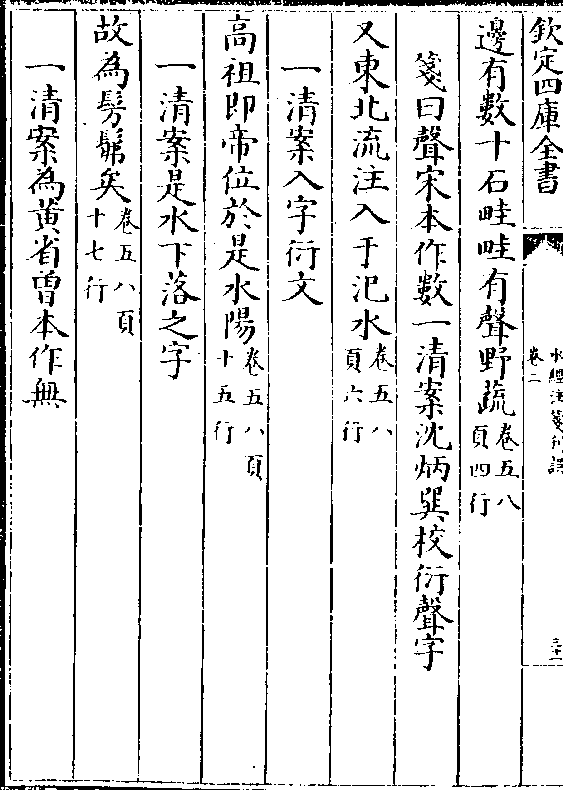 欽定四庫全書
水經注箋刊誤
卷二
邊有數十石畦畦有聲野蔬卷五八頁四行
箋曰聲宋本作數一清案沈炳巽校衍聲字
又東北流注入于汜水卷五八頁六行
一清案入字衍文
高祖即帝位於是水陽卷五八頁十五行
一清案是水下落之字
故為髣髴矣卷五八頁十七行
一清案為黄省曾本作無